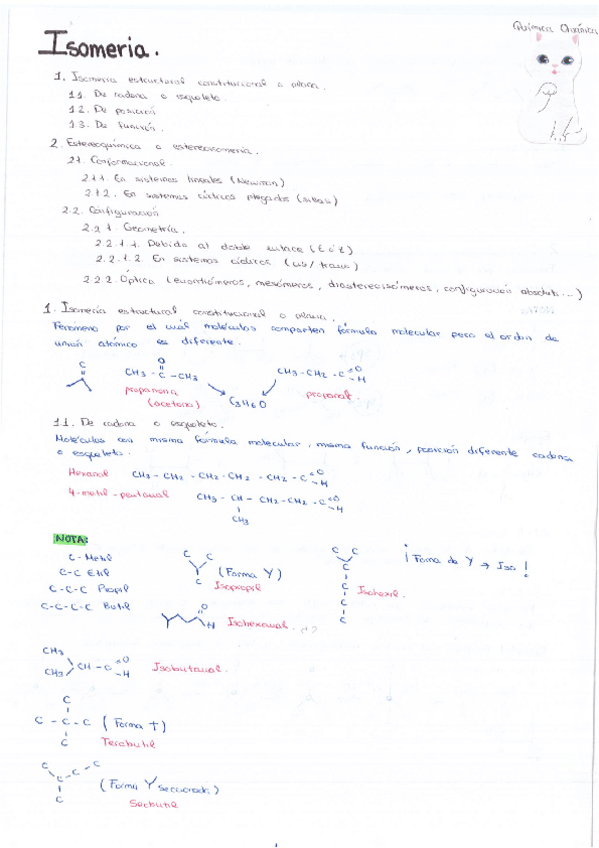 Química Orgánica
Isomeria.
1. Isomería estructural constitucional o plana.
1.1. De cadena o esqueleto.
1.2. De posición
1.3. De función.
2. Estereoquímica o estereoisomería.
2.1. Conformacional.
2.1.1. En sistemas lineales (Newman)
2.1.2. En sistemas cíclicos plegados (sillas)
2.2. Configuración
2.2.1. Geometría.
2.2.1.1. Debida al doble enlace (E ó Z)
2.2.1.2. En sistemas cíclicos (cis/trans)
2.2.2. Óptica (enantiómeros, mesómeros, diastereoisómeros, configuración absoluta...)
1. Isomería estructural constitucional o plana.
Fenómeno por el cuál moléculas comparten fórmula molecular pero el orden de
unión atómico es diferente.
O
CH3 - C - CH3
CH3-CH2 - C =O - H
propanona
(acetona)
C3H6O
propanal.
1.1. De cadena o esqueleto.
Moléculas con misma fórmula molecular, misma función, posición diferente cadena
o esqueleto.
Hexanal CH3 - CH2 - CH2 - CH2 - CH2 - C =O - H
4-metil-pentanal CH3 - CH - CH2 - CH2 - C =O - H
CH3
NOTA:
C - Metil
C-C Etil
C-C-C Propil
C-C-C-C Butil
C C
C
(Forma Y)
Isopropil
C C
C
C
C
C
Isohexil.
¡Forma de Y → Iso!
O
H
Isohexanal.
CH3
CH3
CH - C =O - H
Isobutanal.
C
C - C - C (Forma T)
C
Terbutil
C C - C
C
C
(Forma Y seccionada)
Secbutil